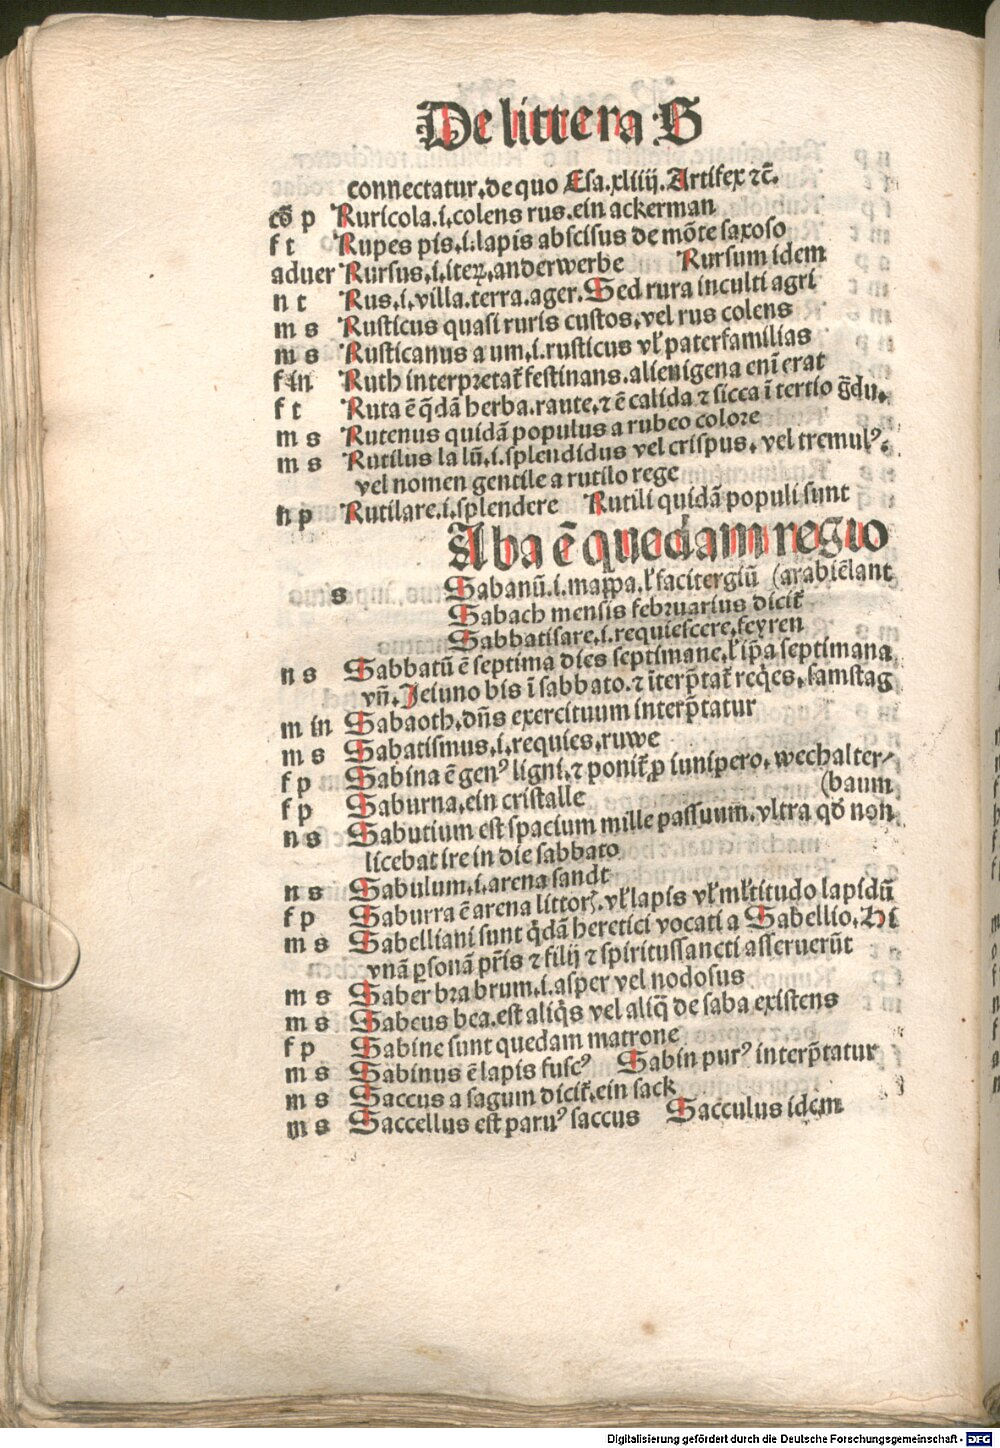 De littera S
connectatur.de quo Esa.xliiij.Artifex ⁊c̄.
cō p Ruricola.i.colens rus.ein ackerman
f t Rupes pis.i.lapis abscisus de mōte saxoso
aduer Rursus.i.iteꝝ.anderwerbe Rursum idem
n t Rus.i.villa.terra.ager.Sed rura inculti agri
m s Rusticus quasi ruris custos.vel rus colens
m s Rusticanus a um.i.rusticus vl̓ paterfamilias
f in Ruth interpretat̄ festinans.alienigena eni̅ erat
f t Ruta ē q̄dā herba.raute.⁊ ē calida ⁊ sicca ī tertio ḡdu.
m s Rutenus quidā populus a rubeo colore
m s Rutilus la lū.i.splendidus vel crispus.vel tremulꝰ.
vel nomen gentile a rutilo rege
n p Rutilare.i.splendere Rutili quidā populi sunt
Aba ē quedam regio
s Sabanū.i.mappa.l̓ facitergiū (arabiēlant
Sabach mensis februarius dicit̄
Sabbatisare.i.requiescere.feyren
n s Sabbatū ē septima dies septimane.l̓ ip̄a septimana
vn̄.Jeiuno bis ī sabbato.⁊ īterp̄tat̄ req̇es.samstag
m in Sabaoth.dn̄s exercituum interp̄tatur
m s Sabatismus.i.requies.ruwe
f p Sabina ē genꝰ ligni.⁊ ponit̄ ꝓ iunipero.wechalter⸗
f p Saburna.ein cristalle (baum
n s Sabutium est spacium mille passuum.vltra qd̄ non
licebat ire in die sabbato
n s Sabulum.i.arena sandt
f p Saburra ē arena littoꝝ.vl̓ lapis vl̓ ml̓titudo lapidū
m s Sabelliani sunt q̇dā heretici vocati a Sabellio.Hi
vnā ꝑsonā pr̄is ⁊ filij ⁊ spiritussancti asseruerūt
m s Saber bra brum.i.asper vel nodosus
m s Sabeus bea.est aliq̇s vel aliq̄ de saba existens
f p Sabine sunt quedam matrone
m s Sabinus ē lapis fuscꝰ Sabin purꝰ interp̄tatur
m s Saccus a sagum dicit̄.ein sack
m s Saccellus est paruꝰ saccus Sacculus idem
Digitalisierung gefördert durch die Deutsche Forschungsgemeinschaft - DFG